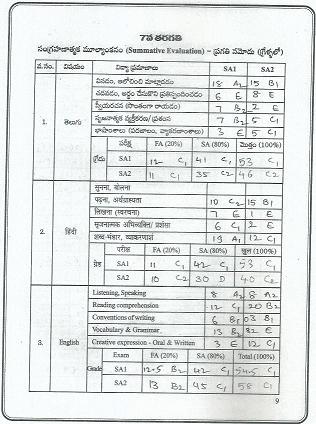 7వ తరగతి
సంగ్రహణాత్మక మూల్యాంకనం (Summative Evaluation) – ప్రగతి నమోదు (గ్రేడ్లలో)
వ.సం. విషయం విద్యా ప్రమాణాలు SA1 SA2
వినడం, ఆలోచించి మాట్లాడడం 18 A2 15 B1
చదవడం, అర్థం చేసుకొని ప్రతిస్పందించడం 6 E 8 E
స్వీయరచన (సొంతంగా రాయడం) 7 B2 2 E
సృజనాత్మక వ్యక్తీకరణ/ప్రశంస 7 B2 5 C1
1. తెలుగు భాషాంశాలు (పదజాలం, వ్యాకరణాంశాలు) 3 E 5 C1
పరీక్ష FA (20%) SA (80%) మొత్తం (100%)
గ్రేడు SA1 12 C1 41 C1 53 C1
SA2 11 C1 35 C2 46 C2
सुनना, बोलना
पढ़ना, अर्थग्राह्यता 10 C2 15 B1
लिखना (स्वरचना) 7 E 1 E
सृजनात्मक अभिव्यक्ति/ प्रशंसा 6 C1 2 E
2. हिंदी शब्द-भंडार, व्याकरणांश 19 A1 12 C1
परीक्षा FA (20%) SA (80%) कुल (100%)
ग्रेड SA1 11 C1 42 C1 53 C1
SA2 10 C2 30 D 40 C2
Listening, Speaking 8 A2 8 A2
Reading comprehension 12 C1 20 B2
Conventions of writing 6 B1 03 B1
Vocabulary & Grammar 13 B2 E
3. English Creative expression - Oral & Written 3 E 12 C1
Exam FA (20%) SA (80%) Total (100%)
Grade SA1 12.5 B2 42 C1 54.5 C1
SA2 13 B2 45 C1 58 C1
9